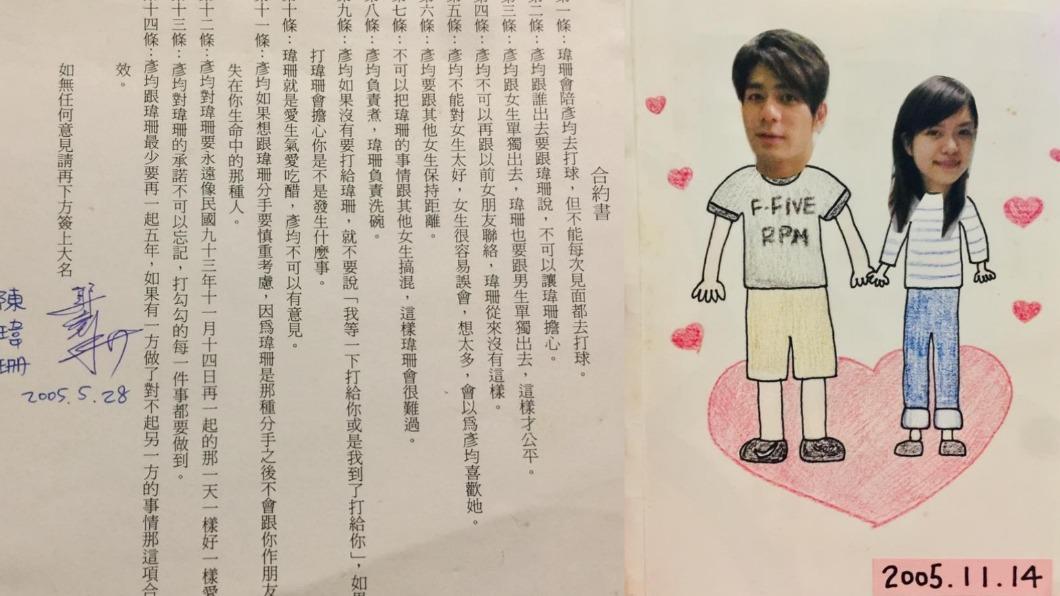 合約書
第一條：瑋珊會陪彥均去打球，但不能每次見面都去打球。
第二條：彥均跟誰出去要跟瑋珊說，不可以讓瑋珊擔心。
第三條：彥均跟女生單獨出去，瑋珊也要跟男生單獨出去，這樣才公平。
第四條：彥均不可以再跟以前女朋友聯絡，瑋珊從來沒有這樣。
第五條：彥均不能對女生太好，女生很容易誤會，想太多，會以為彥均喜歡她。
第六條：彥均要跟其他女生保持距離。
第七條：不可以把瑋珊的事情跟其他女生搞混，這樣瑋珊會很難過。
第八條：彥均負責煮，瑋珊負責洗碗。
第九條：彥均如果沒有要打給瑋珊，就不要說「我等一下打給你或是我到了打給你」，如果
打瑋珊會擔心你是不是發生什麼事。
第十條：瑋珊就是愛生氣愛吃醋，彥均不可以有意見。
第十一條：彥均如果想跟瑋珊分手要慎重考慮，因為瑋珊是那種分手之後不會跟你作朋友
失在你生命中的那種人。
第十二條：彥均對瑋珊要永遠像民國九十三年十一月十四日再一起的那一天一樣好一樣愛
第十三條：彥均對瑋珊的承諾不可以忘記，打勾勾的每一件事都要做到。
第十四條：彥均跟瑋珊最少要再一起五年，如果有一方做了對不起另一方的事情那這項合
效。
如無任何意見請再下方簽上大名
陳瑋珊
2005.5.28
F-FIVE
RPM
2005.11.14